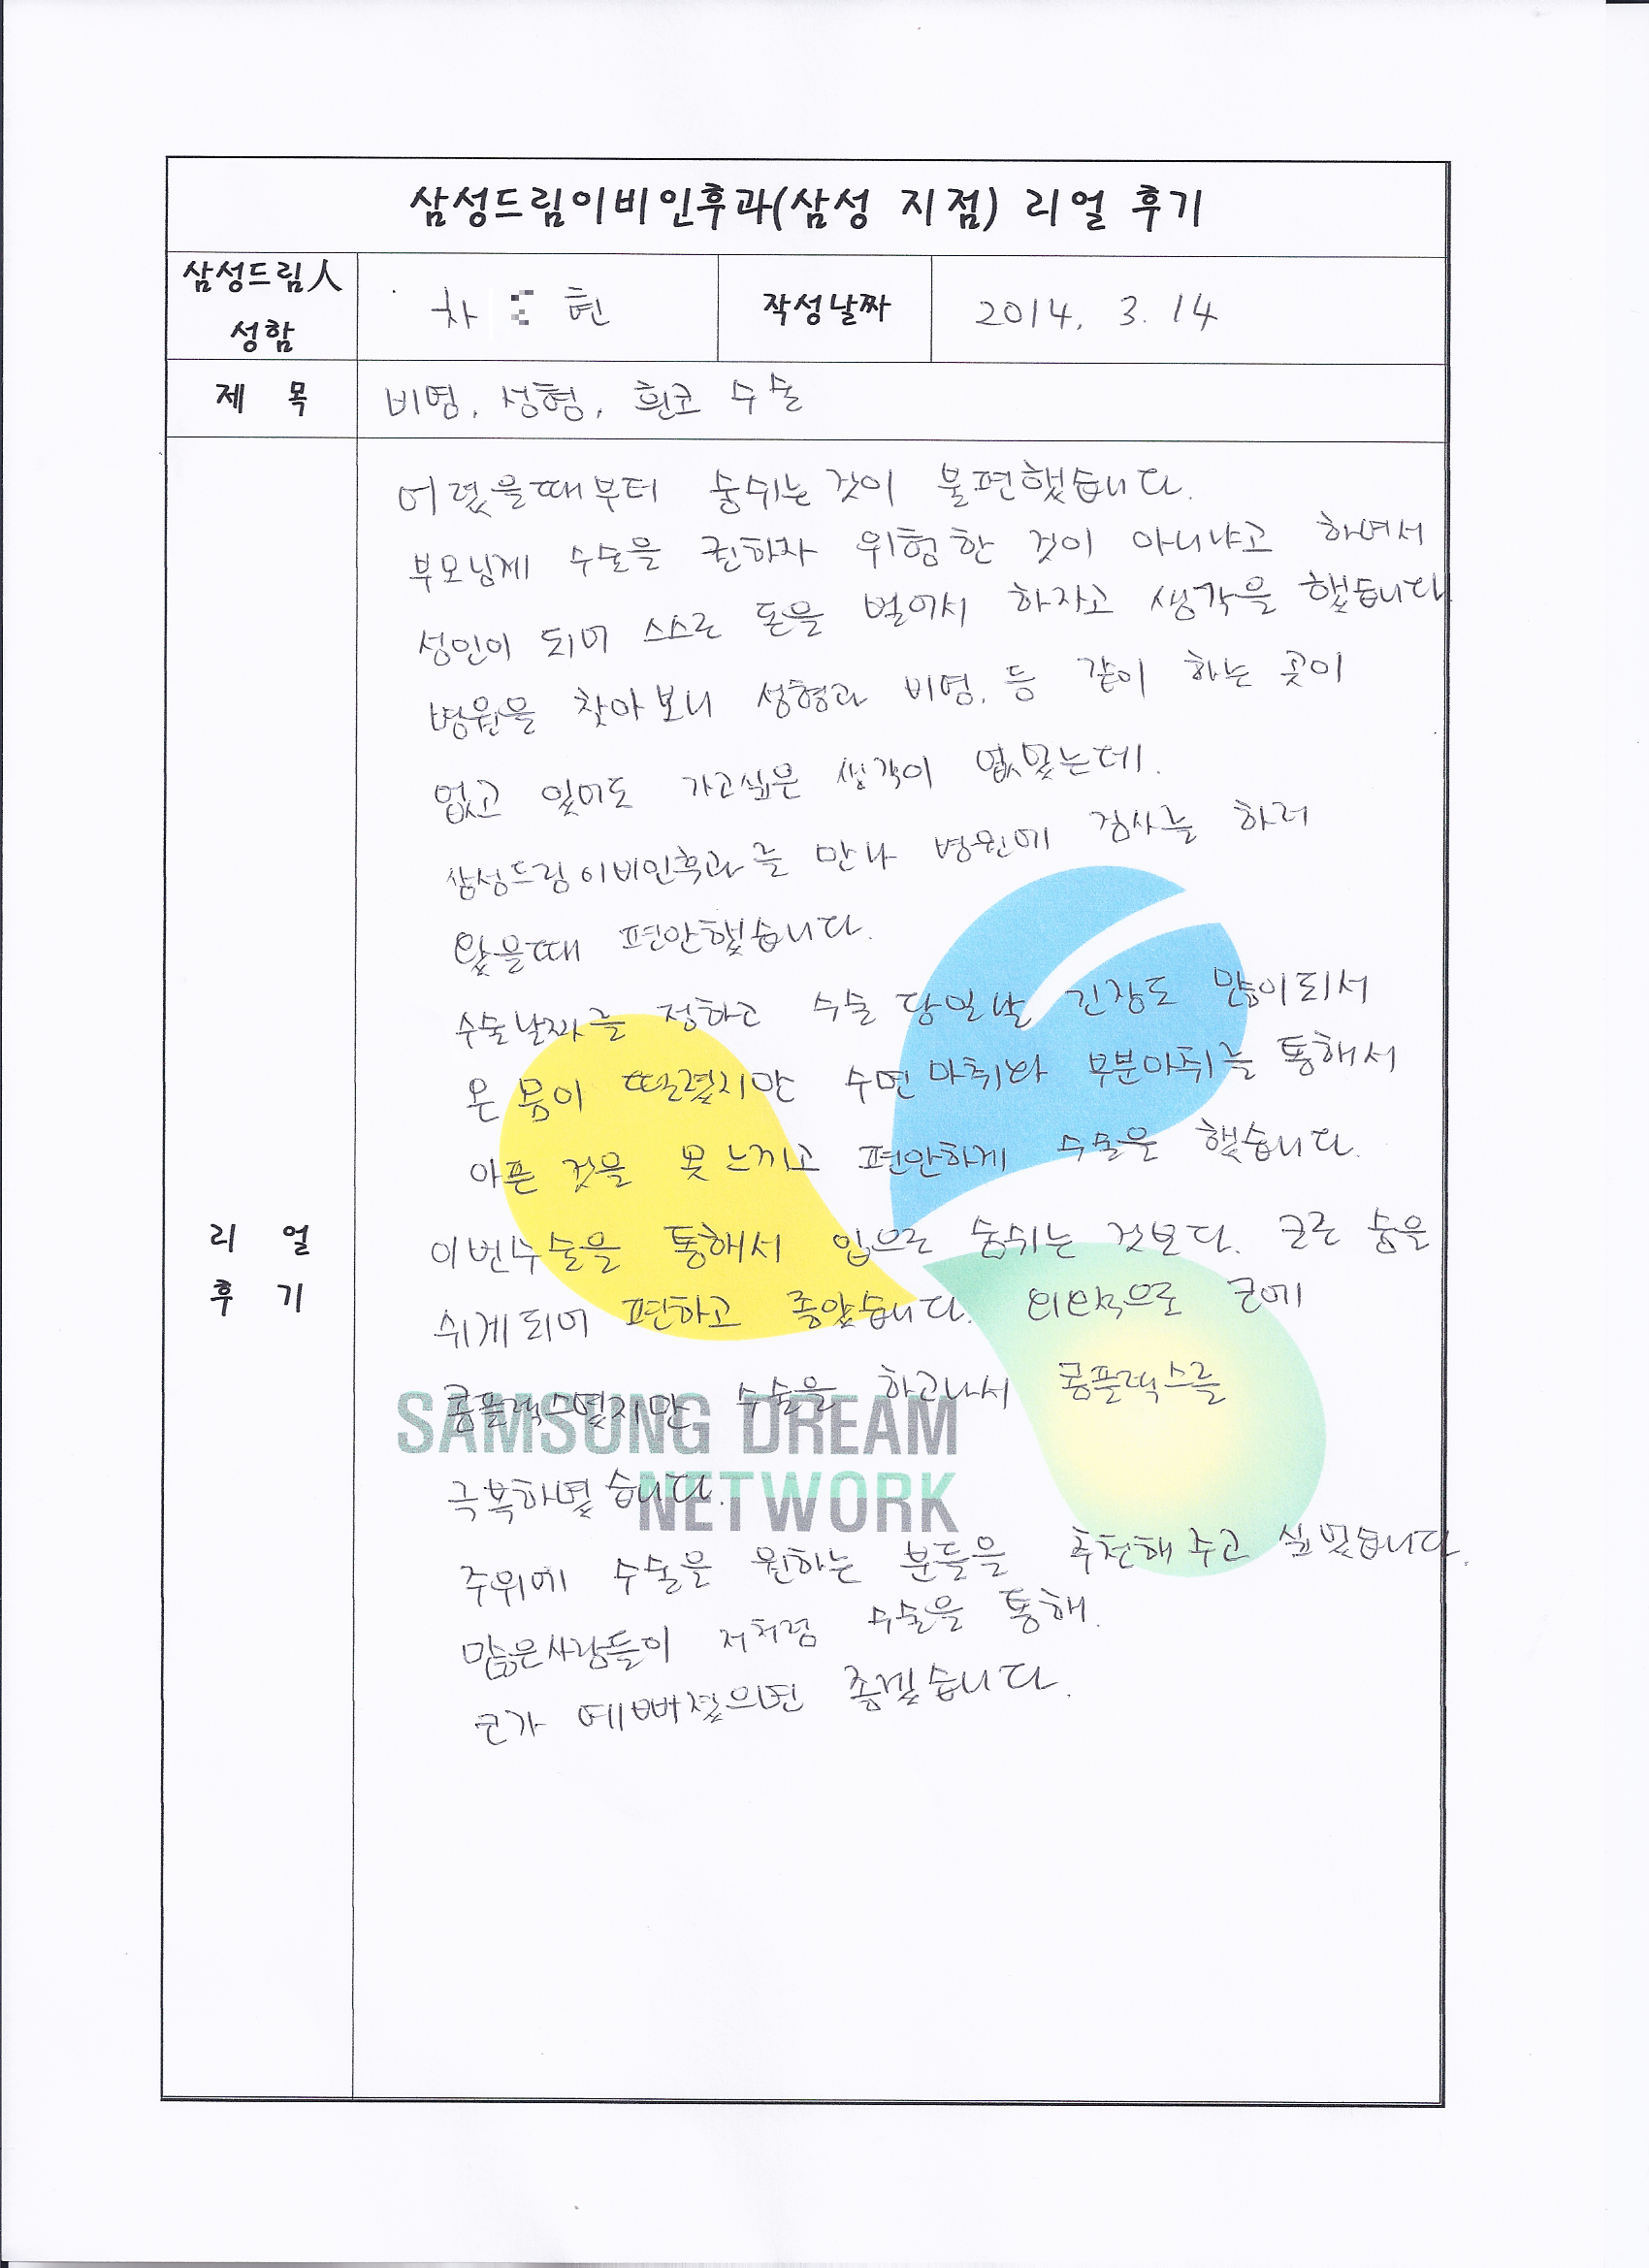 삼성드림이비인후과(삼성 지점) 리얼 후기
삼성드림人
성함
차 현
작성날짜
2014. 3. 14
제 목
비염, 성형, 휜코 수술
어렸을때부터 숨쉬는것이 불편했습니다.
부모님께 수술을 권하자 위험한 것이 아니냐고 하여서
성인이 되어 스스로 돈을 벌어서 하자고 생각을 했습니다
병원을 찾아보니 성형과 비염, 등 같이 하는 곳이
없고 있어도 가고싶은 생각이 없었는데.
삼성드림이비인후과를 만나 병원에 검사를 하러
왔을때 편안했습니다.
수술날짜를 정하고 수술 당일날 긴장도 많이되서
온 몸이 떨렸지만 수면마취와 부분마취를 통해서
아픈 것을 못느끼고 편안하게 수술을 했습니다.
리 얼
후 기
이번수술을 통해서 입으로 숨쉬는 것보다. 코로 숨을
쉬게되어 편하고 좋았습니다. 외관적으로 코에
콤플렉스였지만 수술을 하고나서 콤플렉스를
SAMSUNG DREAM
NETWORK
극복하였습니다.
주위에 수술을 원하는 분들을 추천해 주고 싶었습니다.
많은사람들이 저처럼 수술을 통해.
코가 예뻐졌으면 좋겠습니다.